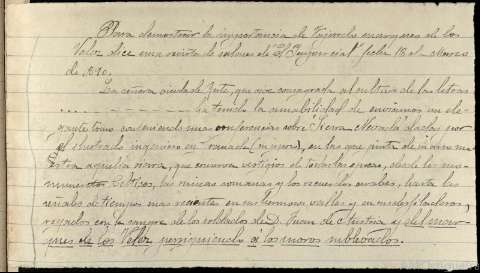 Para demostrar la importancia de Fajardo marques de los
Velez dice una revista de salones de "El Imparcial" fecha 18 de Marzo
de
La señora viuda de que vive consagrada al cultivo de las letras
ha tenido la amabilidad de enviarnos un ele-
gante tomo conteniendo una conferencias sobre Sierra Nevada dadas por
el ilustrado ingeniero en que pinta de mano ma-
estra aquella sierra, que encierra vestigios de todas las epocas, desde los mo-
numentos Celticos, las ruinas romanas y los recuerdos arabes, hasta las
señales de tiempos mas reciente en sus hermosos valles y
regados con la sangre de los soldados de D. Juan de Austria y del mar-
ques de los Velez persiguiendo á los moros sublevados.